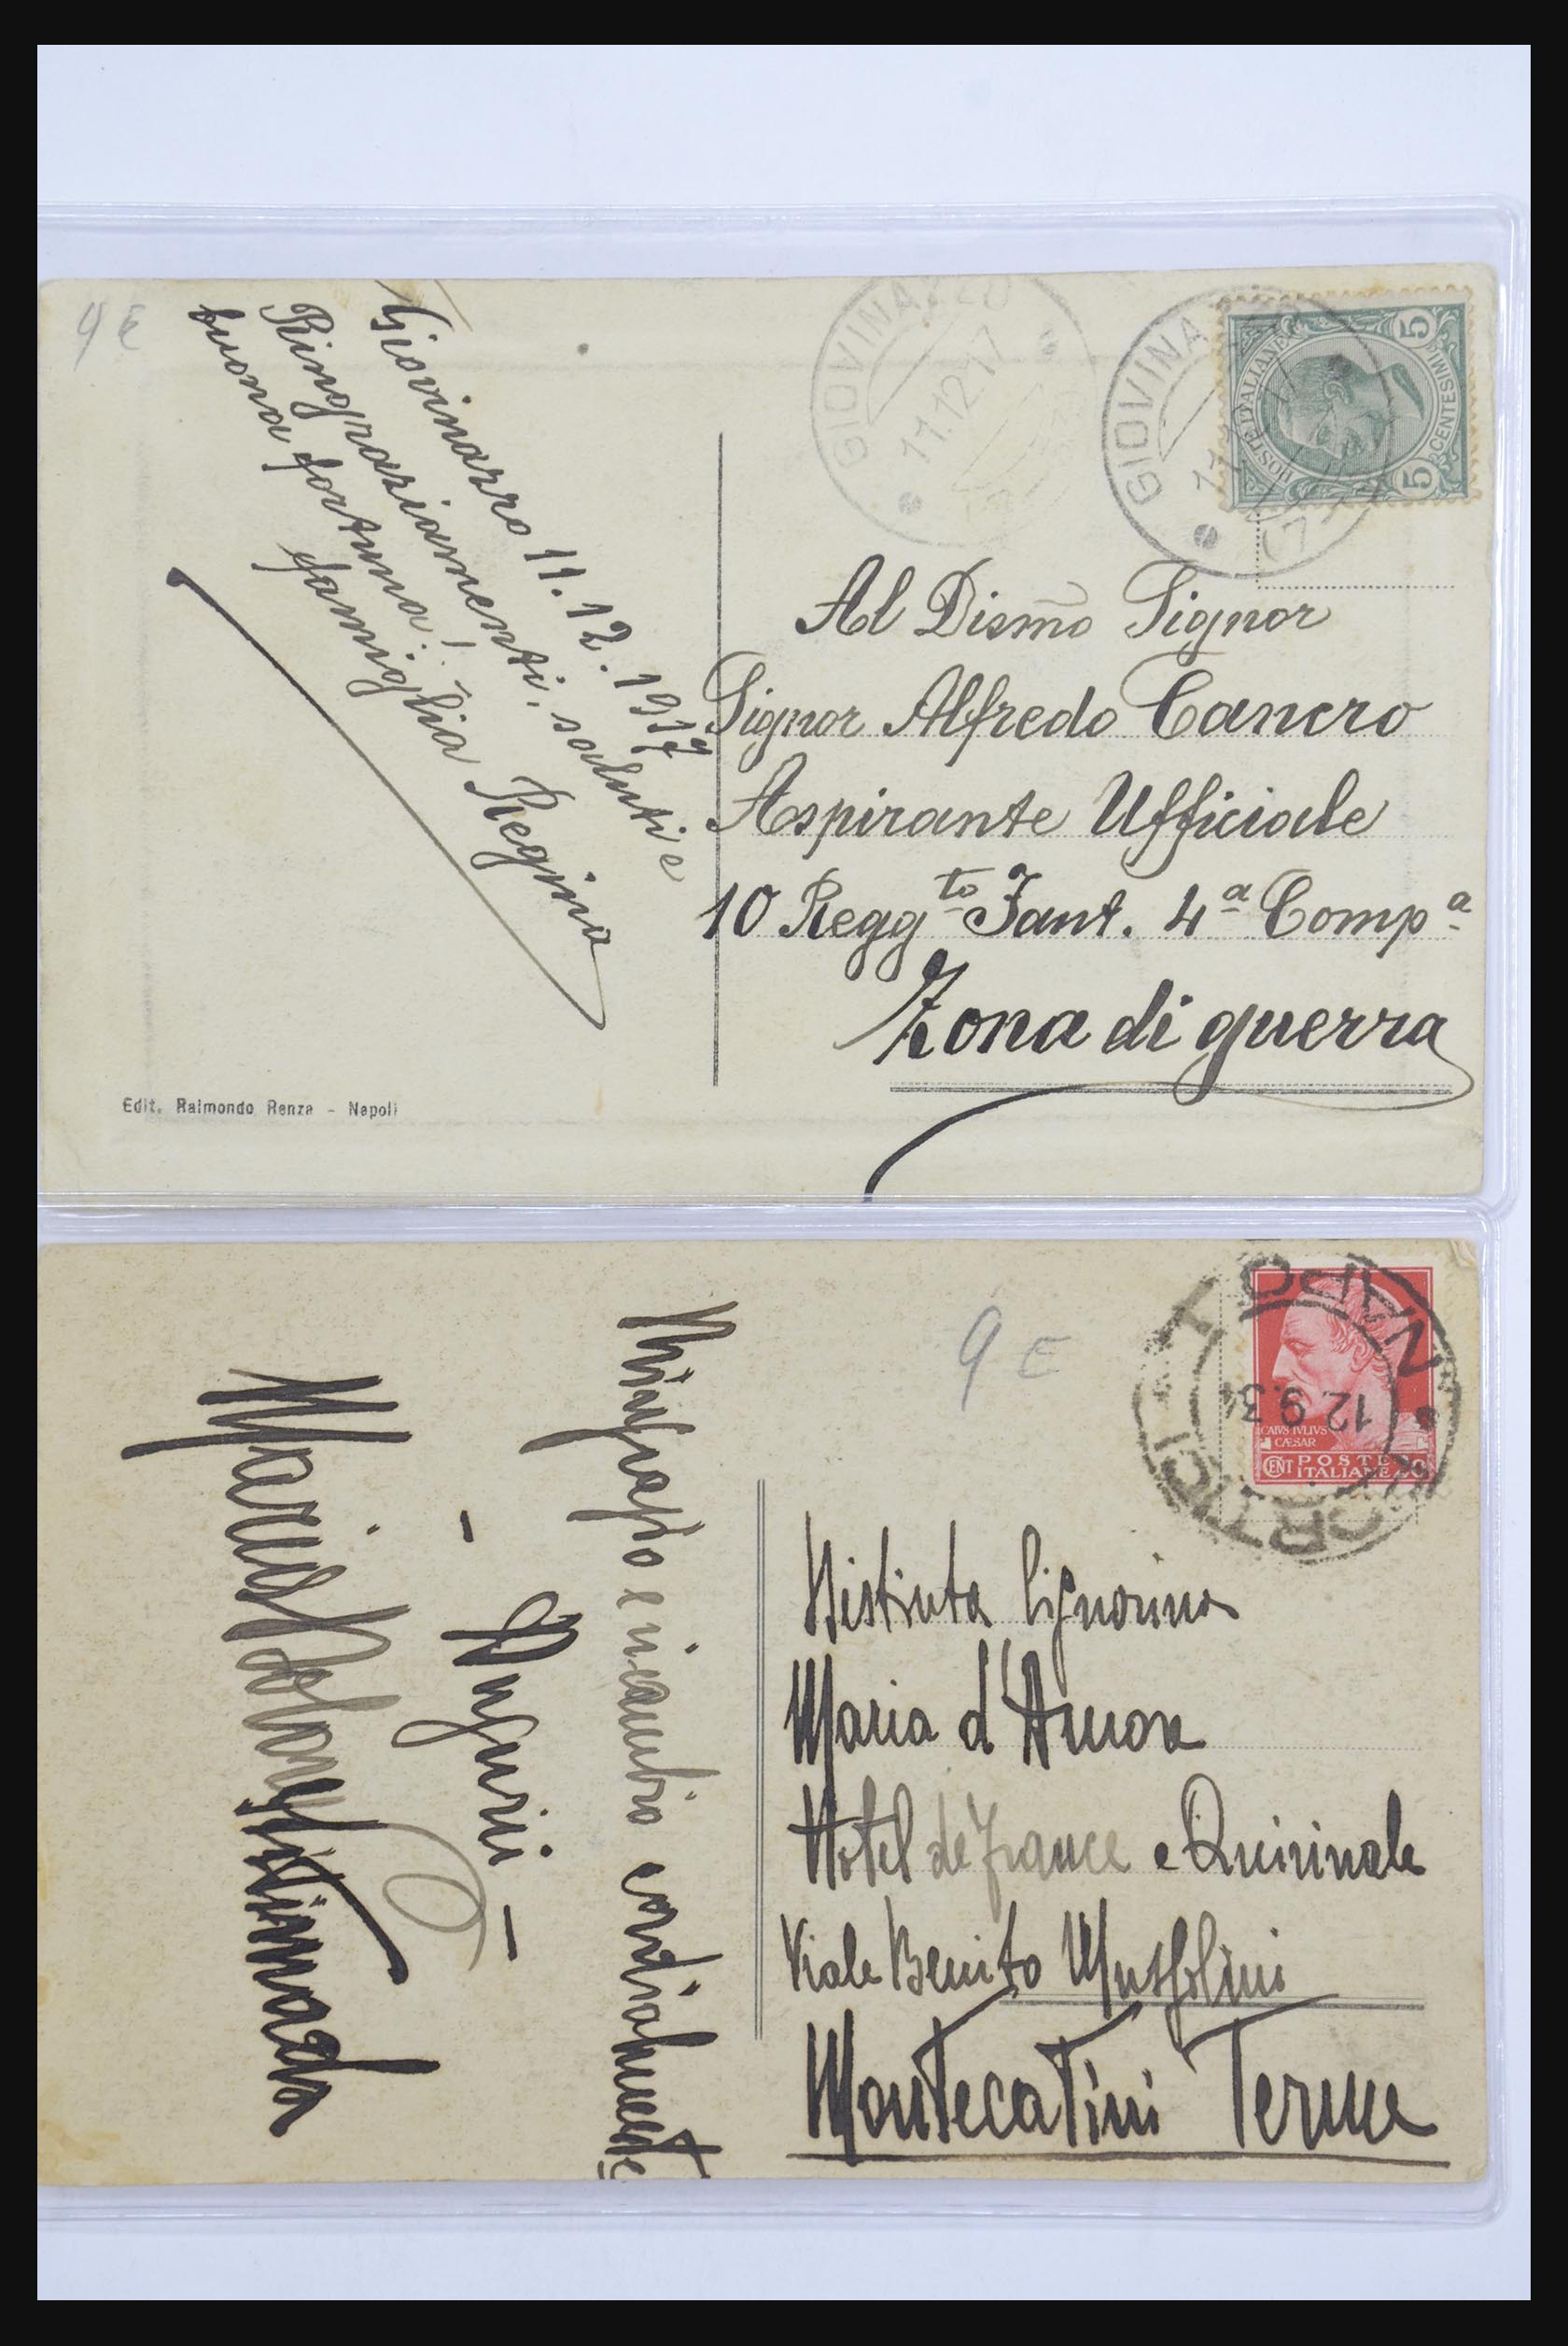 9 E
Giovinazzo 11.12.1917
Ringraziamenti, saluti e
buona fortuna!
famiglia Regina
Edit. Raimondo Renza - Napoli
GIOVINAZZO
11.12.17
GIOVINA
POSTE ITALIANE
5 CENTESIMI 5
Al Dismo Signor
Signor Alfredo Cancro
Aspirante Ufficiale
10 Regg.to Fant. 4a Compa
Zona di guerra
9 E
Ringrazio e ricambio cordialmente
- Auguri -
Maria
NAPOLI
PORTICI
12.9.34
CAIVS IVLIVS
CÆSAR
CENT POSTE
ITALIANE 20
Distinta Signorina
Maria d'Amore
Hotel de France e Quirinale
Viale Benito Mussolini
Montecatini Terme